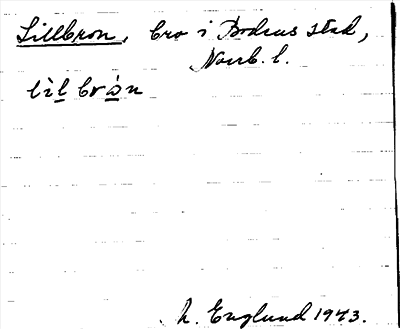 Lillbron, bro i Bodens stad,
Norrb. l.
lìl brò̀n
N. Englund 1943.